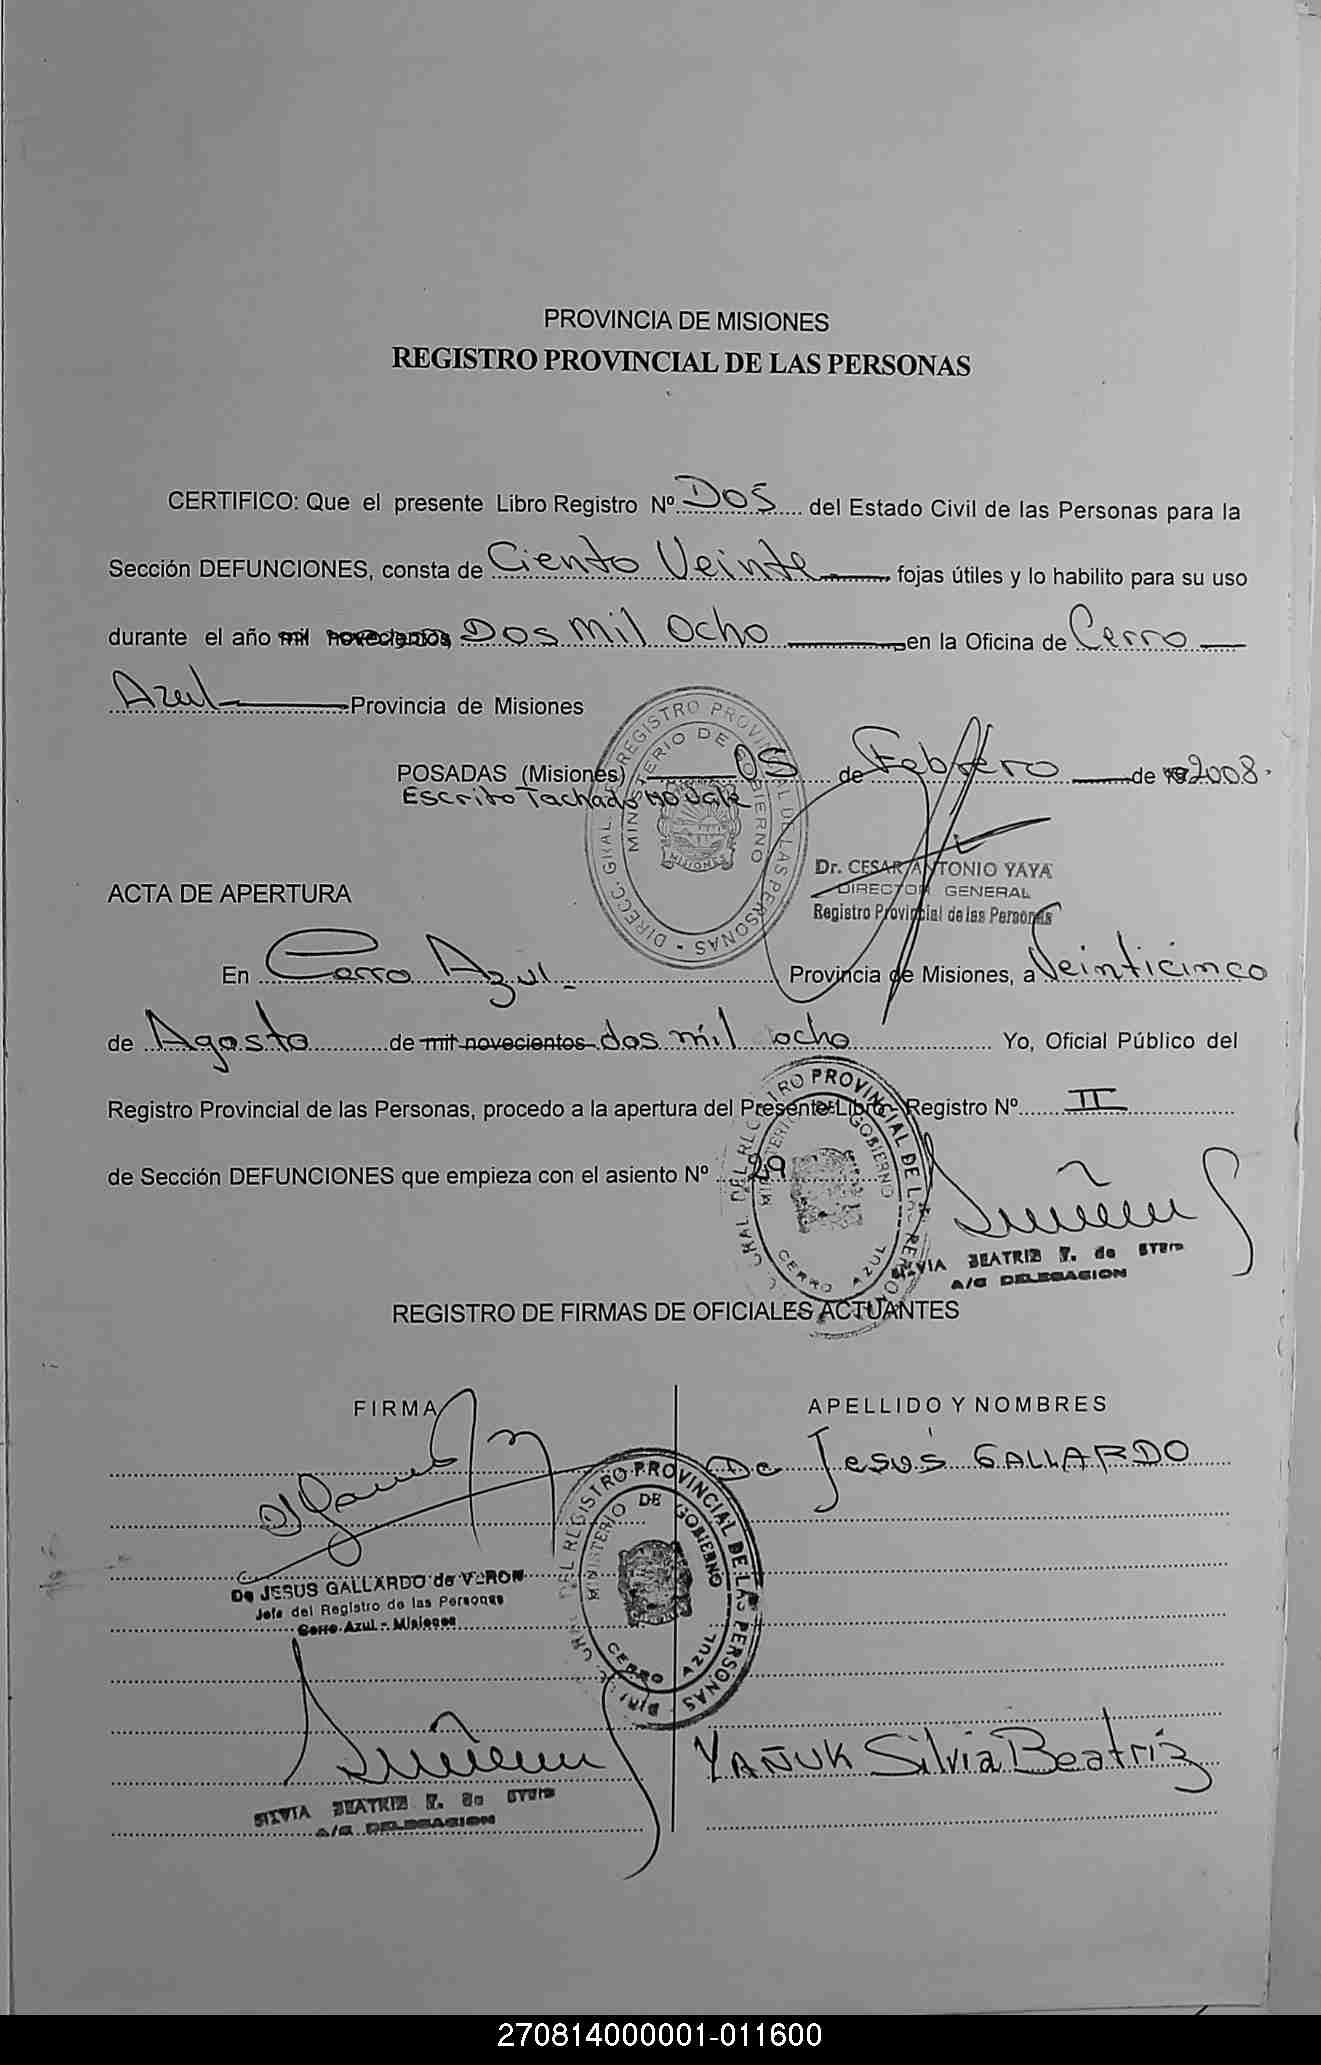 PROVINCIA DE MISIONES
REGISTRO PROVINCIAL DE LAS PERSONAS
CERTIFICO: Que el presente Libro Registro Nº DOS del Estado Civil de las Personas para la
Sección DEFUNCIONES, consta de Ciento Veinte fojas útiles y lo habilito para su uso
durante el año mil novecientos Dos Mil Ocho en la Oficina de Cerro
Azul Provincia de Misiones
POSADAS (Misiones) 05 de Febrero de 19 2008.
Escrito Tachado no vale
DIRECC. GRAL. DEL REGISTRO PROVINCIAL DE LAS PERSONAS
MINISTERIO DE GOBIERNO
MISIONES
Dr. CESAR ANTONIO YAYA
DIRECTOR GENERAL
Registro Provincial de las Personas
ACTA DE APERTURA
En Cerro Azul Provincia de Misiones, a Veinticinco
de Agosto de mil novecientos dos mil ocho Yo, Oficial Público del
Registro Provincial de las Personas, procedo a la apertura del Presente Libro - Registro Nº II
de Sección DEFUNCIONES que empieza con el asiento Nº 29
GRAL. DEL REGISTRO PROVINCIAL DE LAS PERSONAS
MINISTERIO DE GOBIERNO
CERRO AZUL
SILVIA BEATRIZ Y. de
A/C DELEGACION
REGISTRO DE FIRMAS DE OFICIALES ACTUANTES
FIRMA APELLIDO Y NOMBRES
De Jesús GALLARDO
De JESUS GALLARDO de VERON
Jefe del Registro de las Personas
Cerro Azul - Misiones
GRAL. DEL REGISTRO PROVINCIAL DE LAS PERSONAS
MINISTERIO DE GOBIERNO
CERRO AZUL
YAÑUK Silvia Beatriz
SILVIA BEATRIZ Y. de
A/C DELEGACION
270814000001-011600